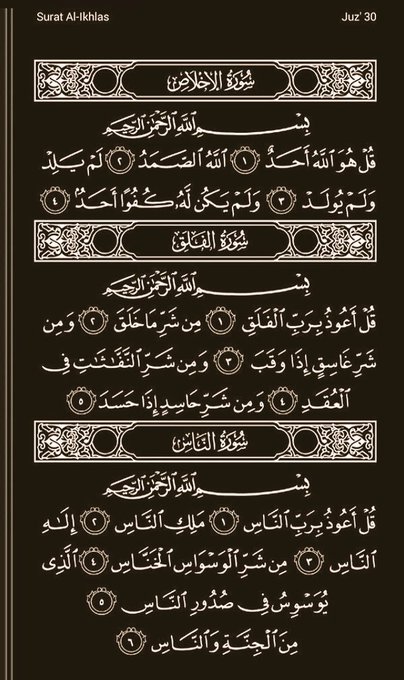 Surat Al-Ikhlas
Juz' 30
سُورَةُ الإِخْلَاصِ
بِسْمِ اللَّهِ الرَّحْمَٰنِ الرَّحِيمِ
قُلْ هُوَ اللَّهُ أَحَدٌ ١ اللَّهُ الصَّمَدُ ٢ لَمْ يَلِدْ
وَلَمْ يُولَدْ ٣ وَلَمْ يَكُن لَّهُۥ كُفُوًا أَحَدٌۢ ٤
سُورَةُ الفَلَقِ
بِسْمِ اللَّهِ الرَّحْمَٰنِ الرَّحِيمِ
قُلْ أَعُوذُ بِرَبِّ الْفَلَقِ ١ مِن شَرِّ مَا خَلَقَ ٢ وَمِن
شَرِّ غَاسِقٍ إِذَا وَقَبَ ٣ وَمِن شَرِّ النَّفَّٰثَٰتِ فِى
الْعُقَدِ ٤ وَمِن شَرِّ حَاسِدٍ إِذَا حَسَدَ ٥
سُورَةُ النَّاسِ
بِسْمِ اللَّهِ الرَّحْمَٰنِ الرَّحِيمِ
قُلْ أَعُوذُ بِرَبِّ النَّاسِ ١ مَلِكِ النَّاسِ ٢ إِلَٰهِ
النَّاسِ ٣ مِن شَرِّ الْوَسْوَاسِ الْخَنَّاسِ ٤ الَّذِى
يُوَسْوِسُ فِى صُدُورِ النَّاسِ ٥
مِنَ الْجِنَّةِ وَالنَّاسِ ٦